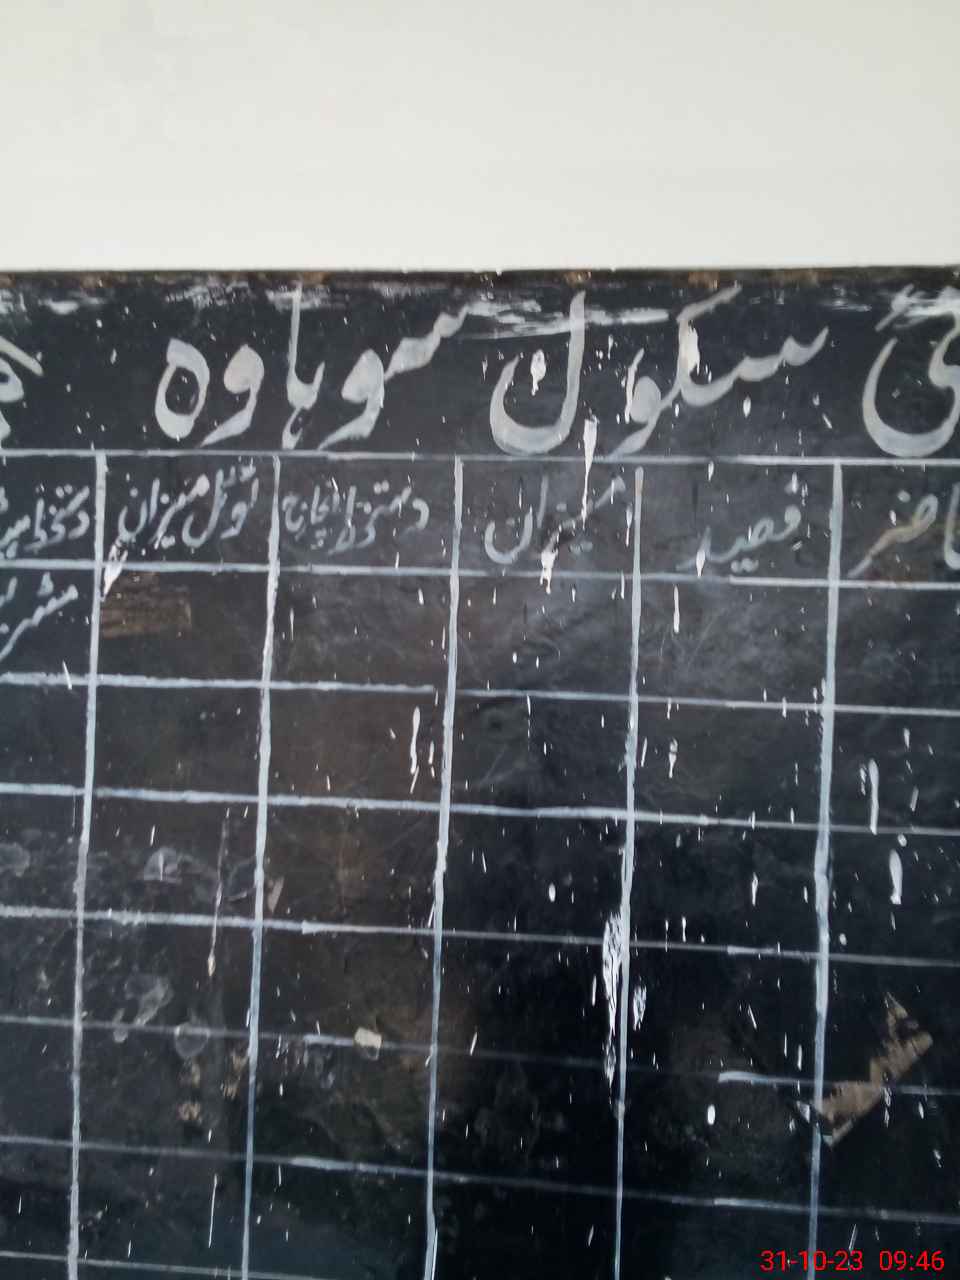 ئی سکول سوہاوہ
حاضر فیصد میزان دستخط انچارج ٹوٹل میزان دستخط
31-10-23 09:46